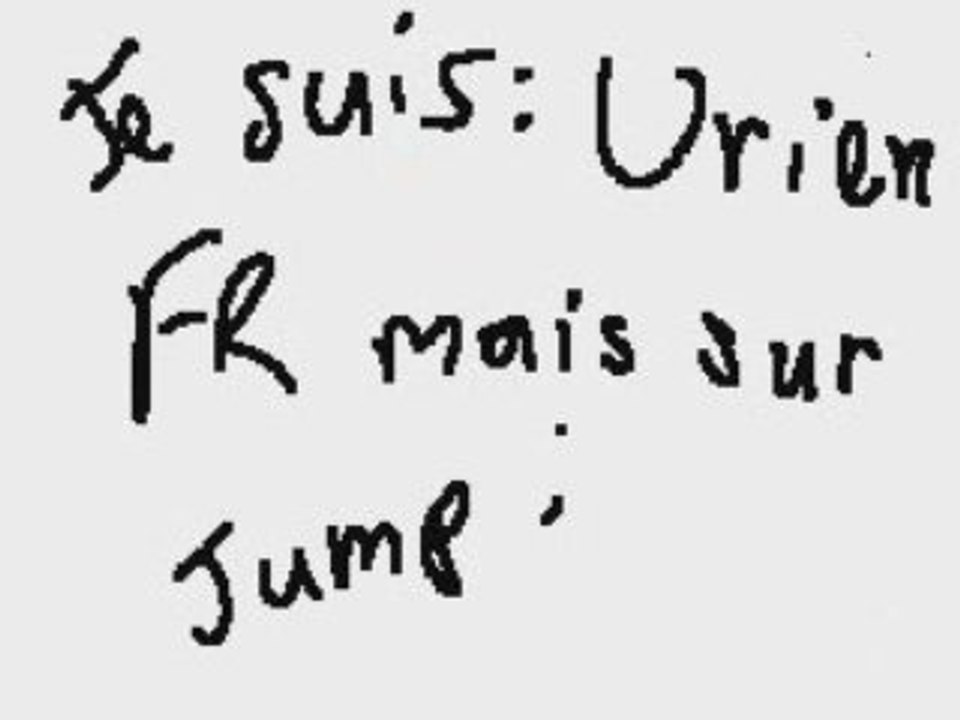 Je suis: Urien
FR mais sur
Jump ;